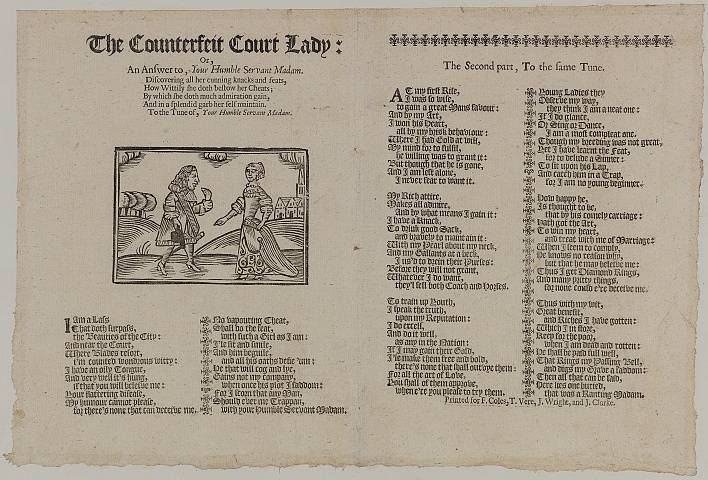 The Counterfeit Court Lady:
Or,
An Answer to, Your Humble Servant Madam.
Discovering all her cunning knacks and feats,
How Wittily she doth bestow her Cheats;
By which she doth much admiration gain,
And in a splendid garb her self maintain.
To the Tune of, Your Humble Servant Madam.
I Am a Lass
that doth surpass,
the Beauties of the City:
And near the Court,
Where Blades resort,
I'm counted wondrous witty:
I have an oily Tongue,
And very well it's hung,
if that you will believe me:
Your flattering disease,
My humour cannot please,
for there's none that can deceive me.
No vapouring Cheat,
Shall do the feat,
with such a Girl as I am:
I'le sit and smile,
And him beguile,
and all his oaths defie 'um:
He that will cog and lye,
Gains not my company,
when once his plot I faddom:
For I scorn that any Man,
Should ever me Trappan,
with your Humble Servant Madam.
The Second part, To the same Tune.
AT my first Rise,
I was so wise,
to gain a great Mans favour:
And by my Art,
I won his Heart,
all by my brisk behaviour:
Where I had Gold at will,
My mind for to fulfil,
he willing was to grant it:
But though that he is gone,
And I am left alone,
I never fear to want it.
My Rich attire,
Makes all admire,
And by what means I gain it:
I have a knack,
To drink good Sack,
and bravely to maintain it:
With my Pearl about my neck,
And my Gallants at a beck,
I us'd to drein their Purses:
Before they will not grant,
Whatever I do want,
they'l sell both Coach and Horses.
To train up Youth,
I speak the truth,
upon my Reputation:
I do excell,
And do it well,
as any in the Nation:
If I may gain there Gold,
I'le make them free and bold,
there's none that can outvye them:
For all the art of Love,
You shall of them approve,
when e're you please to try them.
Young Ladies they
Observe my way,
they think I am a neat one:
If I do glance,
Or Sing or Dance,
I am a most compleat one.
Though my breeding was not great,
Yet I have learnt the Feat,
for to delude a Sinner:
To sit upon his Lap,
And catch him in a Trap,
for I am no young beginner.
How happy he,
Is thought to be,
that by his comely carriage:
Hath got the Art,
To win my heart,
and treat with me of Marriage:
When I seem to comply,
He knows no reason why,
but that he may believe me:
Thus I get Diamond Rings,
And many pritty things,
for none could e're deceive me.
Thus with my wit,
Great benefit,
and Riches I have gotten:
Which I in store,
Keep for the poor,
when I am dead and rotten:
He shall be paid full well,
That Rings my Passing Bell,
and digs my Grave a faddom:
Then all that can be said,
Here lies one buried,
that was a Ranting Madam.
Printed for F. Coles, T. Vere, J. Wright, and J. Clarke.